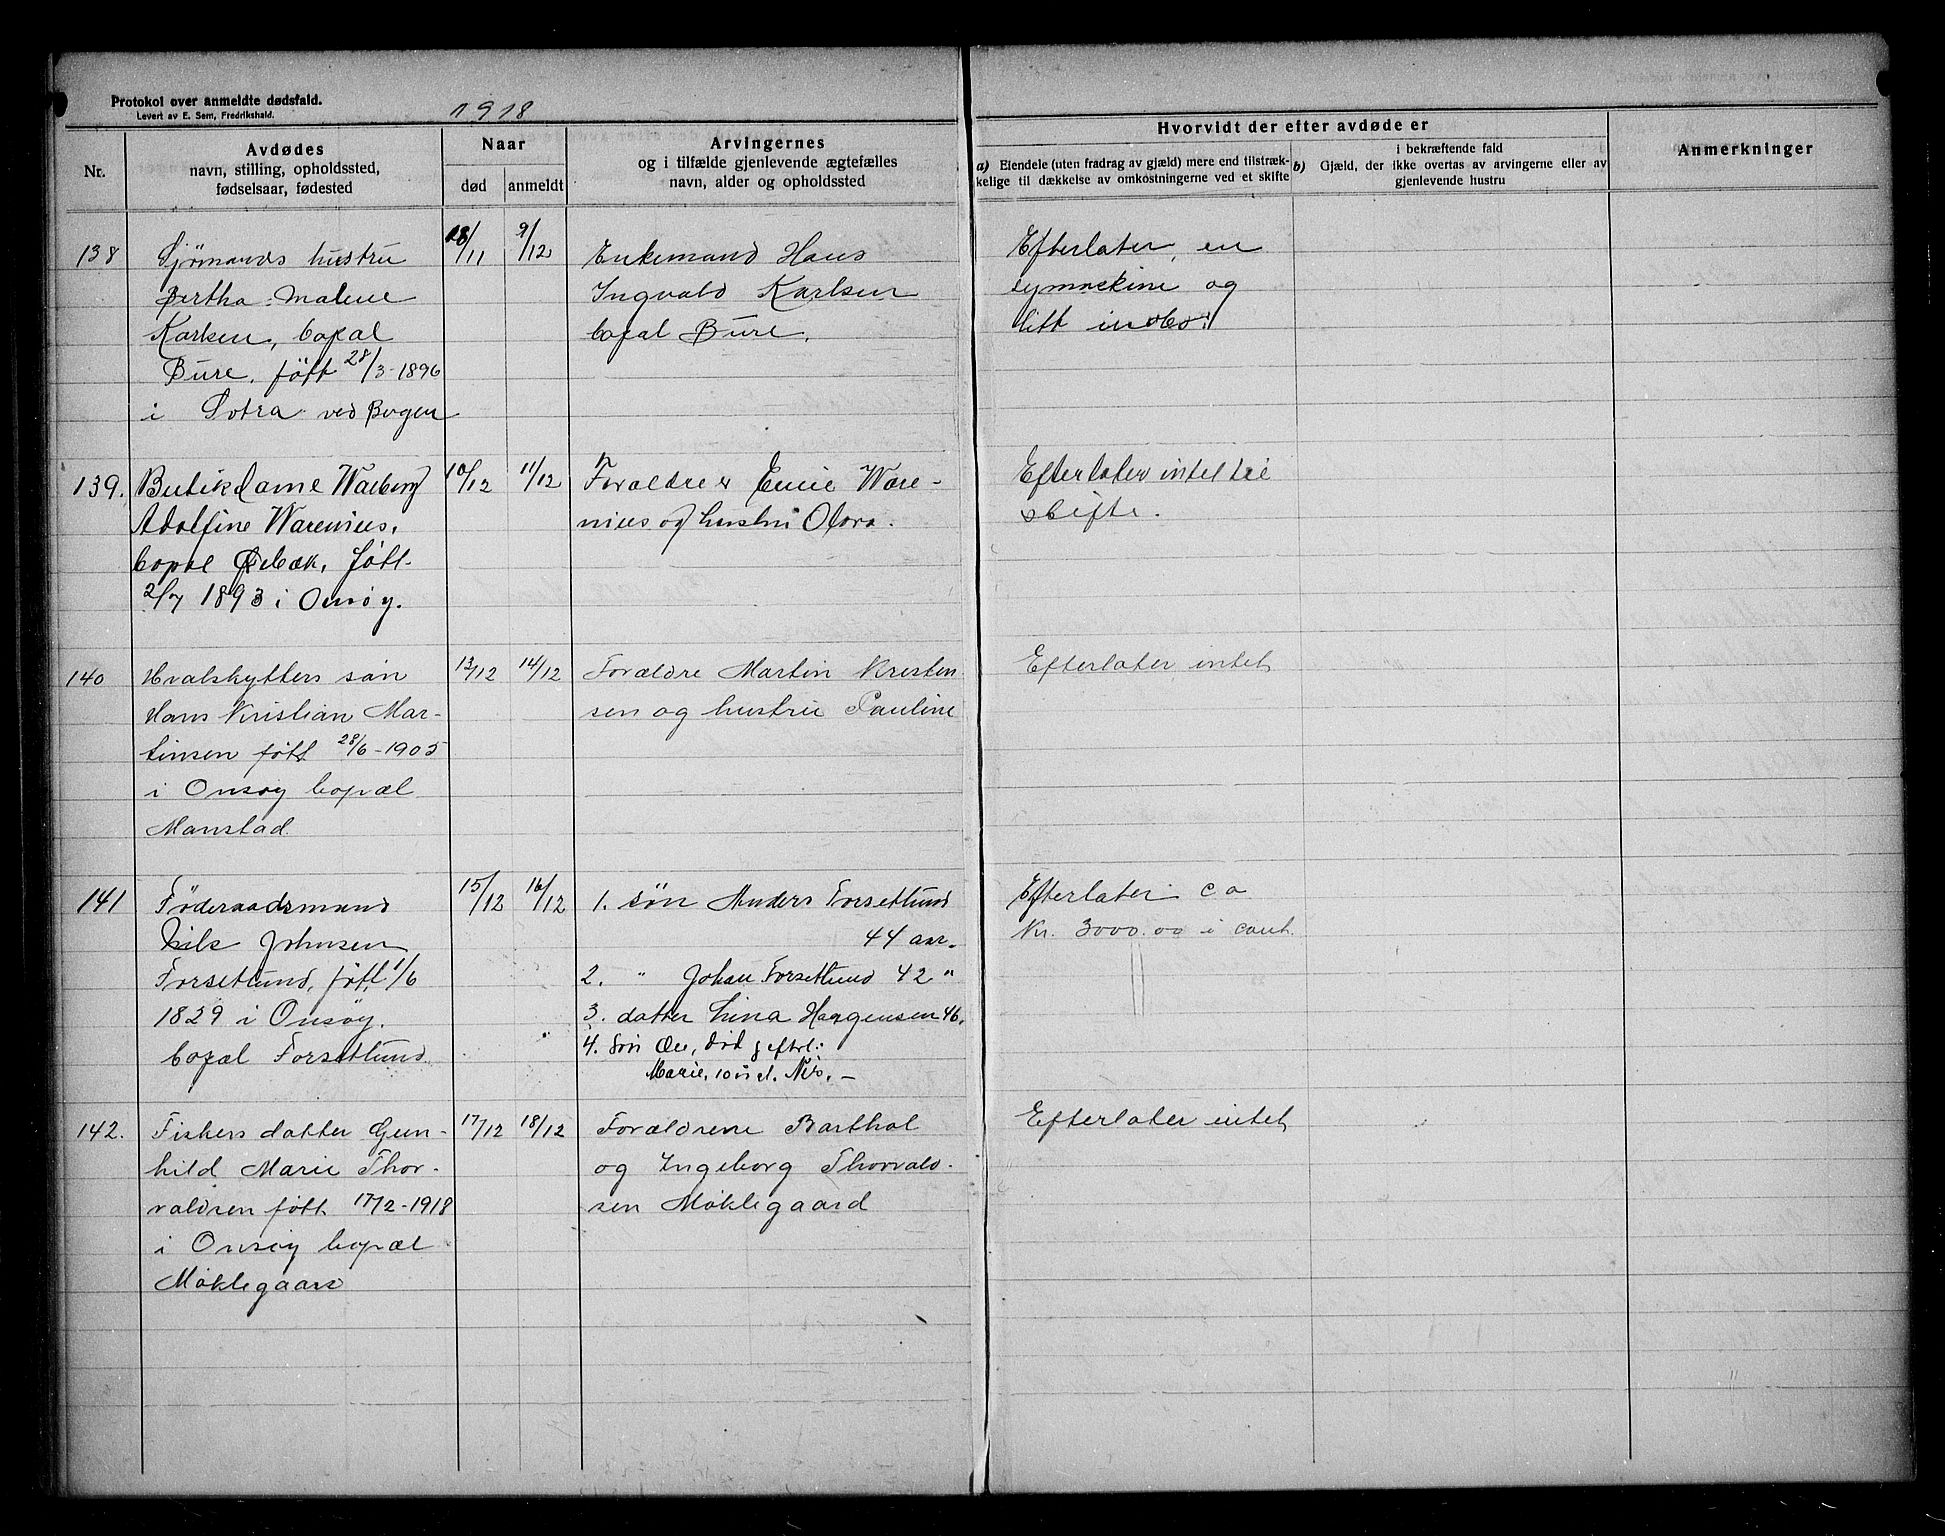 Protokol over anmeldte dødsfald.
Levert av E. Sem, Fredrikshald.
1918
Nr.
Avdødes
navn, stilling, opholdssted,
fødselsaar, fødested
Naar
død
anmeldt
Arvingernes
og i tilfælde gjenlevende ægtefælles
navn, alder og opholdssted
Hvorvidt der efter avdøde er
a) Eiendele (uten fradrag av gjæld) mere end tilstræk-
kelige til dækkelse av omkostningerne ved et skifte
i bekræftende fald
b) Gjæld, der ikke overtas av arvingerne eller av
gjenlevende hustru
Anmerkninger
138
Sjømands hustru
Bertha Malene
Karlsen, bopæl
Bure, født 28/3-1896
i Sotra ved Bergen
18/11
9/12
Enkemand Hans
Ingvald Karlsen
bopæl Bure.
Efterlater en
symaskine og
litt indbo.
139.
Butikdame
Adolfine Warenius,
bopæl Ørebæk, født
2/7 1893 i Onsøy.
10/12
11/12
Forældre Ware-
nius og hustru Olava.
Efterlater intet til
skifte.
140
Hvalskytters søn
Hans Kristian Mar-
tinsen født 28/6-1905
i Onsøy bopæl
Manstad
13/12
14/12
Forældre Martin Kristen
sen og hustru Pauline
Efterlater intet
141
Føderaadsmand
Nils Johnsen
Forsetlund, født 1/6
1829 i Onsøy.
bopæl Forsetlund
15/12
16/12
1. søn Anders Forsetlund
44 aar.
2. " Johan Forsetlund 42 "
3. datter Lina Haagensen 46.
4. Søn død, efterl:
Marie,
Efterlater ca
Kr. 3000.00 i cont.
142.
Fiskers datter Gun-
hild Marie Thor-
valdsen født 17/2-1918
i Onsøy bopæl
Møklegaard
17/12
18/12
Forældrene Barthol
og Ingeborg Thorvald-
sen Møklegaard
Efterlater intet